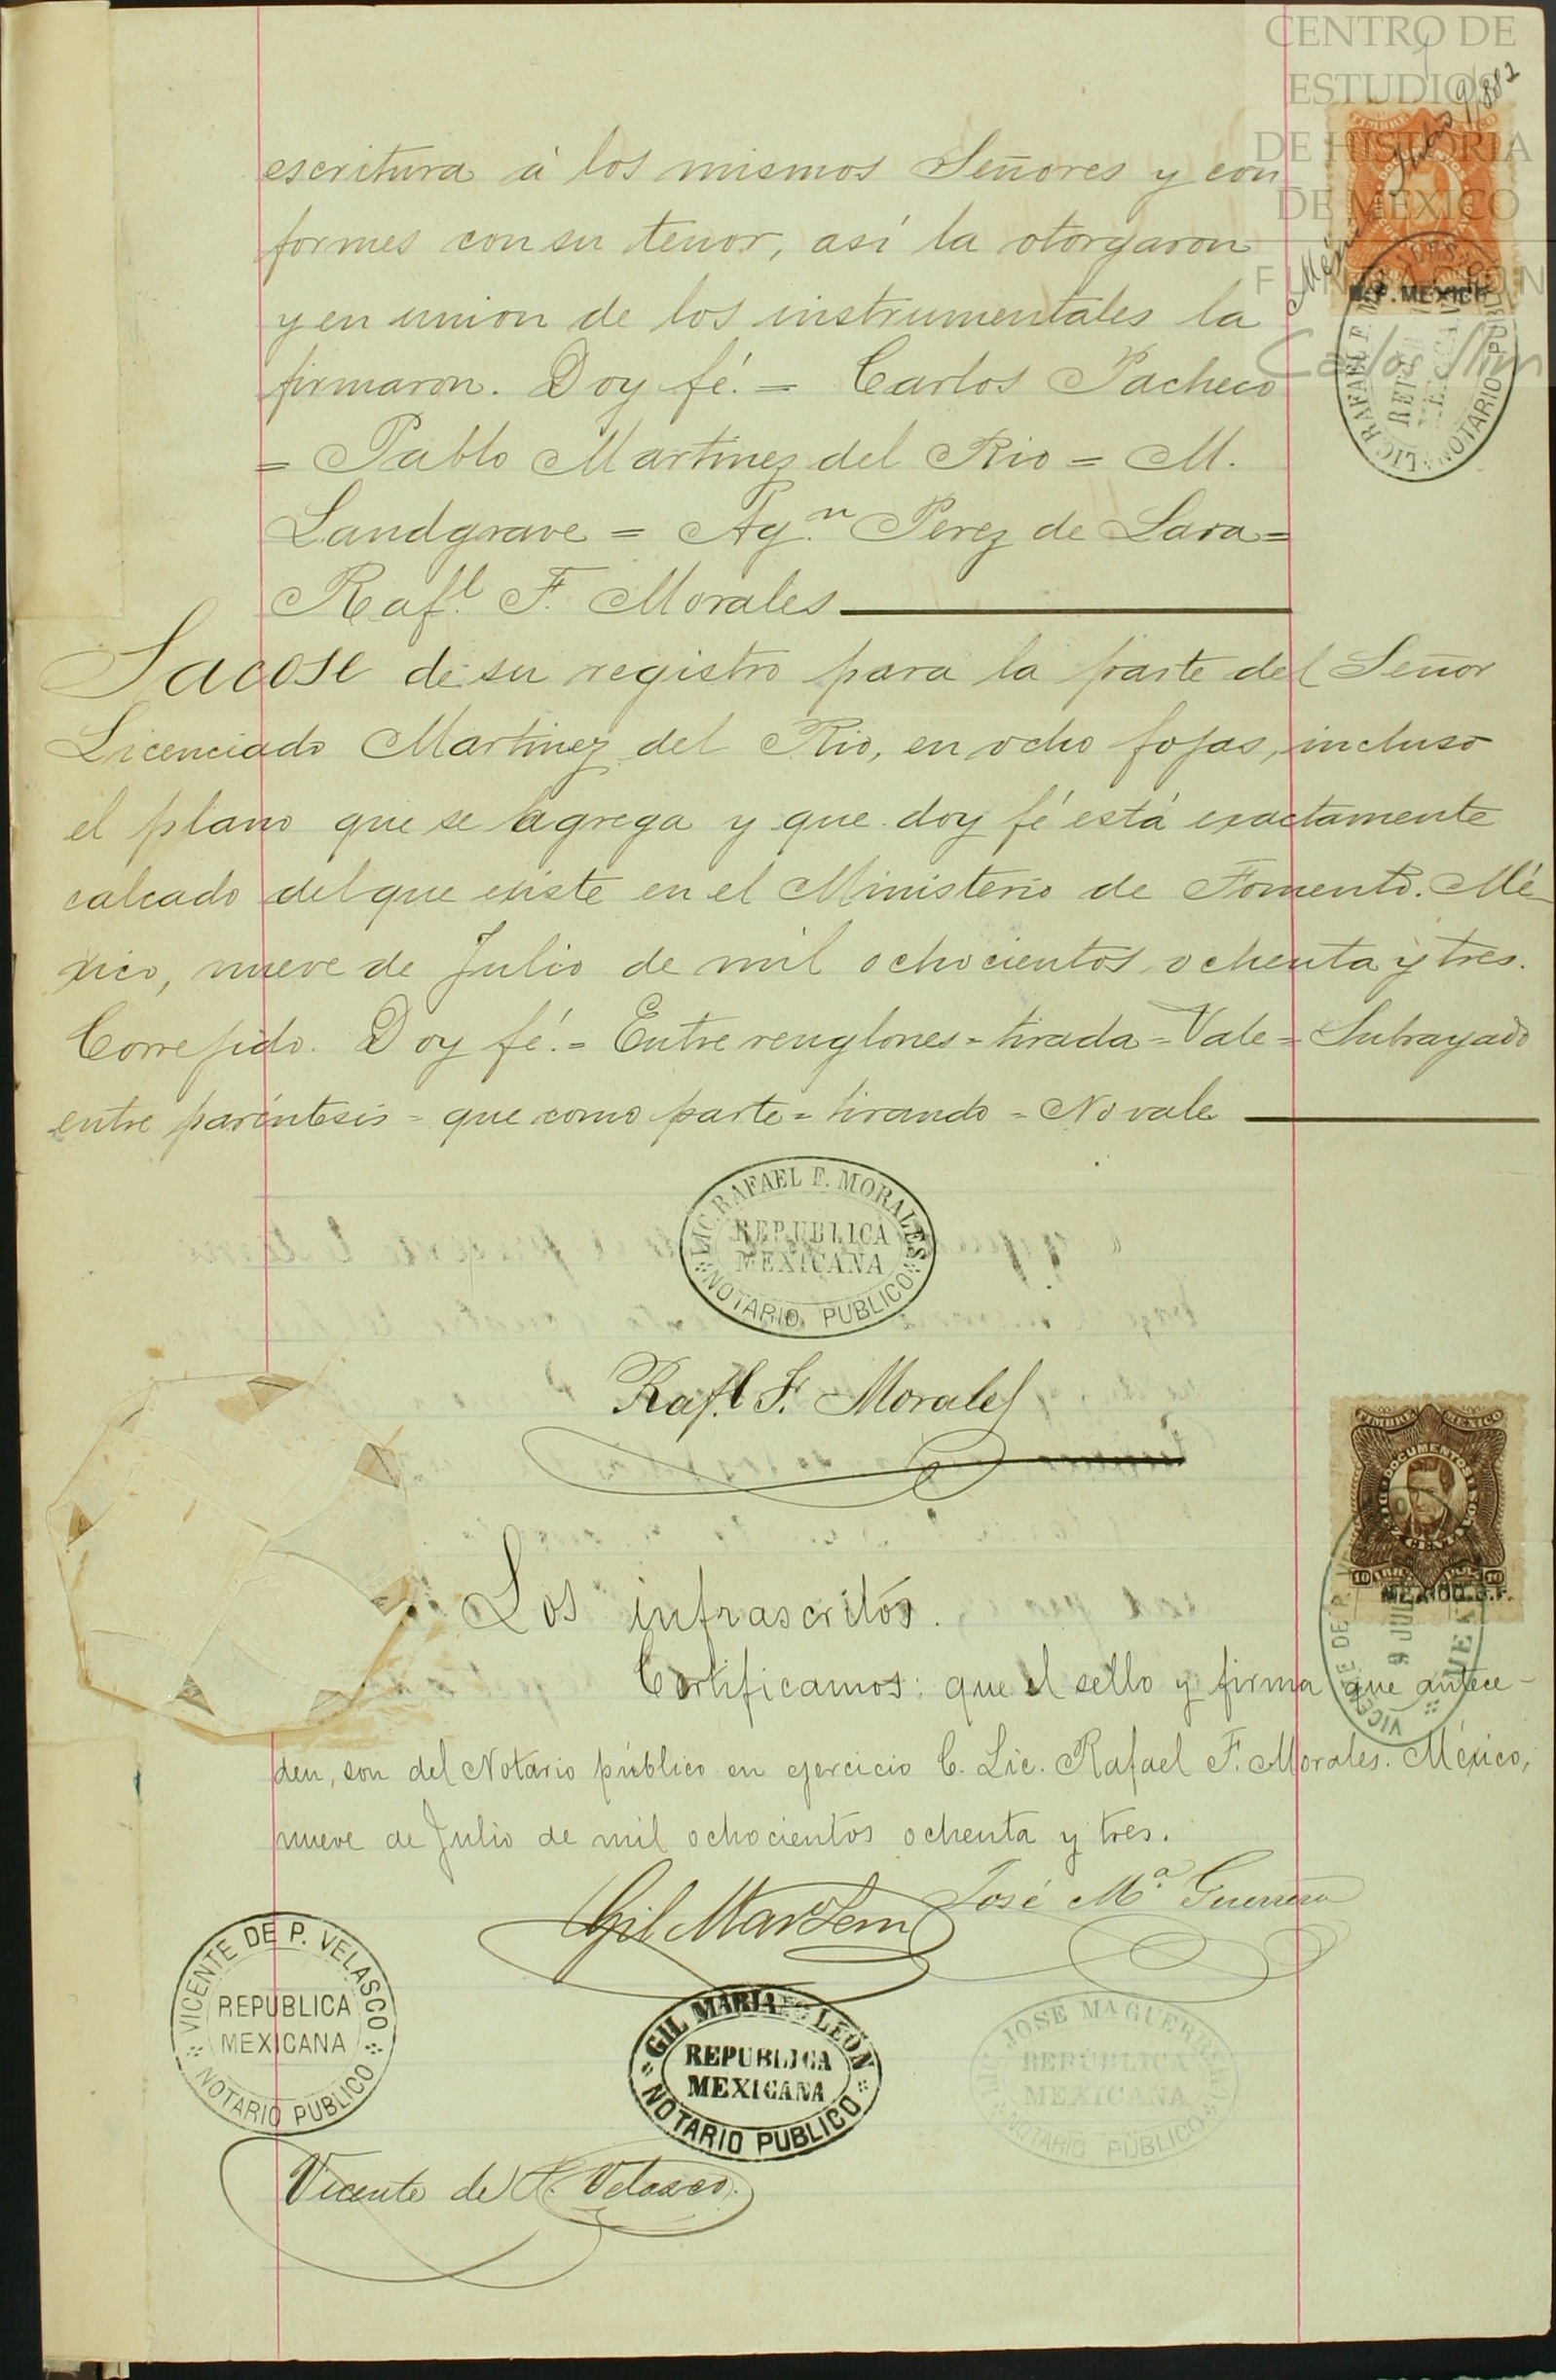 CENTRO DE
ESTUDIOS
DE HISTORIA
DE MEXICO
FUNDACION
Carlos Slim
escritura á los mismos Señores y con
formes con su tenor, así la otorgaron
y en union de los instrumentales la
firmaron. Doy fé. = Carlos Pacheco
= Pablo Martinez del Rio = M.
Landgrave = Ag.n Perez de Lara =
Raf.l F. Morales
LIC. RAFAEL F.
NOTARIO PUBLICO
Sacose de su registro para la parte del Señor
Licenciado Martinez del Rio, en ocho fojas, incluso
el plano que se agrega y que doy fé está exactamente
calcado del que existe en el Ministerio de Fomento. Mé-
xico, nueve de Julio de mil ochocientos ochenta y tres.
Corregido. Doy fé. = Entre renglones = tirada = Vale = Subrayado
entre paréntesis = que como parte = tirando = No vale
LIC. RAFAEL F. MORALES
REPUBLICA
MEXICANA
NOTARIO PUBLICO
Raf.l F. Morales
TIMBRE MEXICO
DOCUMENTOS
MEXICO. D.F.
9 JUL
Los infrascritos.
Certificamos: que el sello y firma que antece-
den, son del Notario público en ejercicio C. Lic. Rafael F. Morales. México,
nueve de Julio de mil ochocientos ochenta y tres.
José M.a Guerrero
VICENTE DE P. VELASCO
REPUBLICA
MEXICANA
NOTARIO PUBLICO
GIL MARIANO LEÓN
REPUBLICA
MEXICANA
NOTARIO PUBLICO
LIC. JOSÉ MA GUERRERO
REPÚBLICA
MEXICANA
NOTARIO PUBLICO
Vicente de P. Velasco.